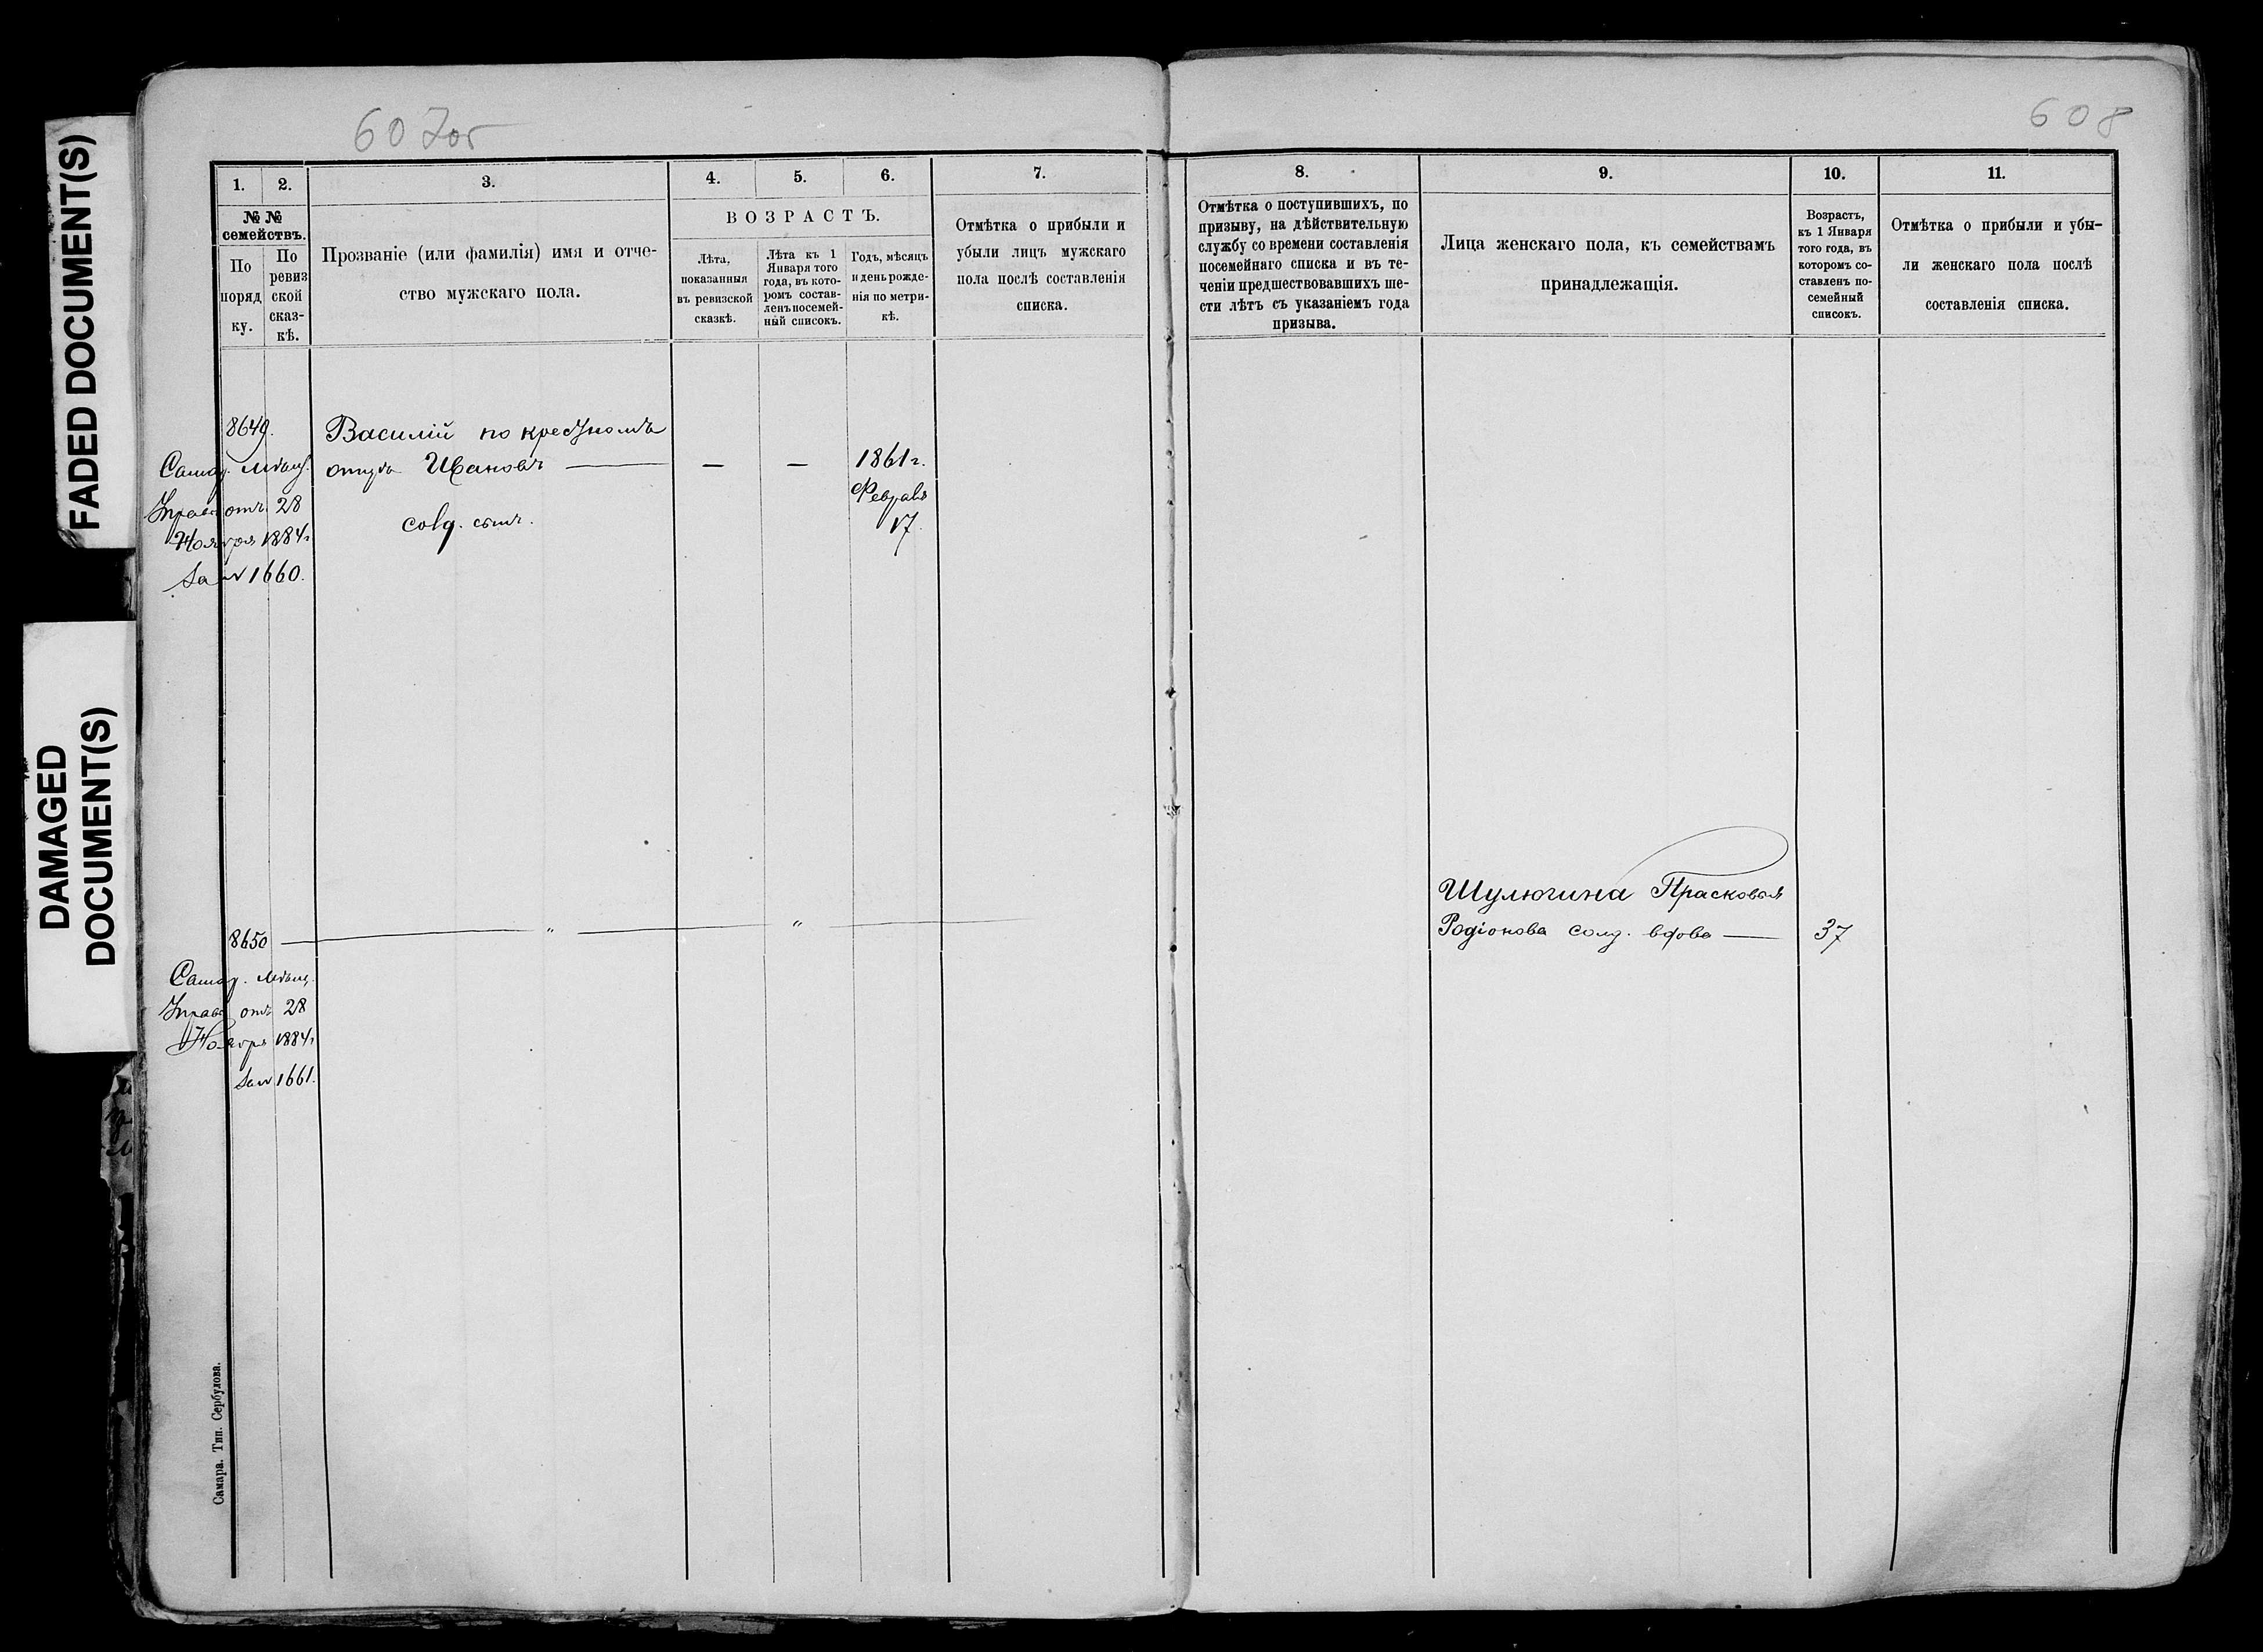 FADED DOCUMENT(S)
DAMAGED
DOCUMENT(S)
607об
608
1.
2.
3.
4.
5.
6.
7.
8.
9.
10.
11.
№ №
семействъ.
По
поряд
ку.
По
ревиз
ской
сказ-
кѣ.
Прозваніе (или фамилія) имя и отче-
ство мужскаго пола.
ВОЗРАСТЪ.
Лѣта,
показанныя
въ ревизской
сказкѣ.
Лѣта къ 1
Января того
года, въ кото-
ромъ состав-
ленъ посемей-
ный списокъ.
Годъ, мѣсяцъ
и день рожде-
нія по метри-
кѣ.
Отмѣтка о прибыли и
убыли лицъ мужскаго
пола послѣ составленія
списка.
Отмѣтка о поступившихъ, по
призыву, на дѣйствительную
службу со времени составленія
посемейнаго списка и въ те-
ченіи предшествовавшихъ ше-
сти лѣтъ съ указаніемъ года
призыва.
Лица женскаго пола, къ семействамъ
принадлежащія.
Возрастъ,
къ 1 Января
того года, въ
которомъ со-
ставленъ по-
семейный
списокъ.
Отмѣтка о прибыли и убы-
ли женскаго пола послѣ
составленія списка.
8649.
Василій по крестномъ
отцѣ Ивановъ — — —
солд. сынъ.
1861 г.
Февраля
17.
Мѣщ.
Управ. отъ 28
Ноября 1884 г
за № 1660.
8650 — " — " —
Шулюгина Прасковья
Родіонова солд. вдова — 37
Мѣщ.
Управ. отъ 28
Ноября 1884 г
за № 1661.
Самара. Тип. Сербулова.